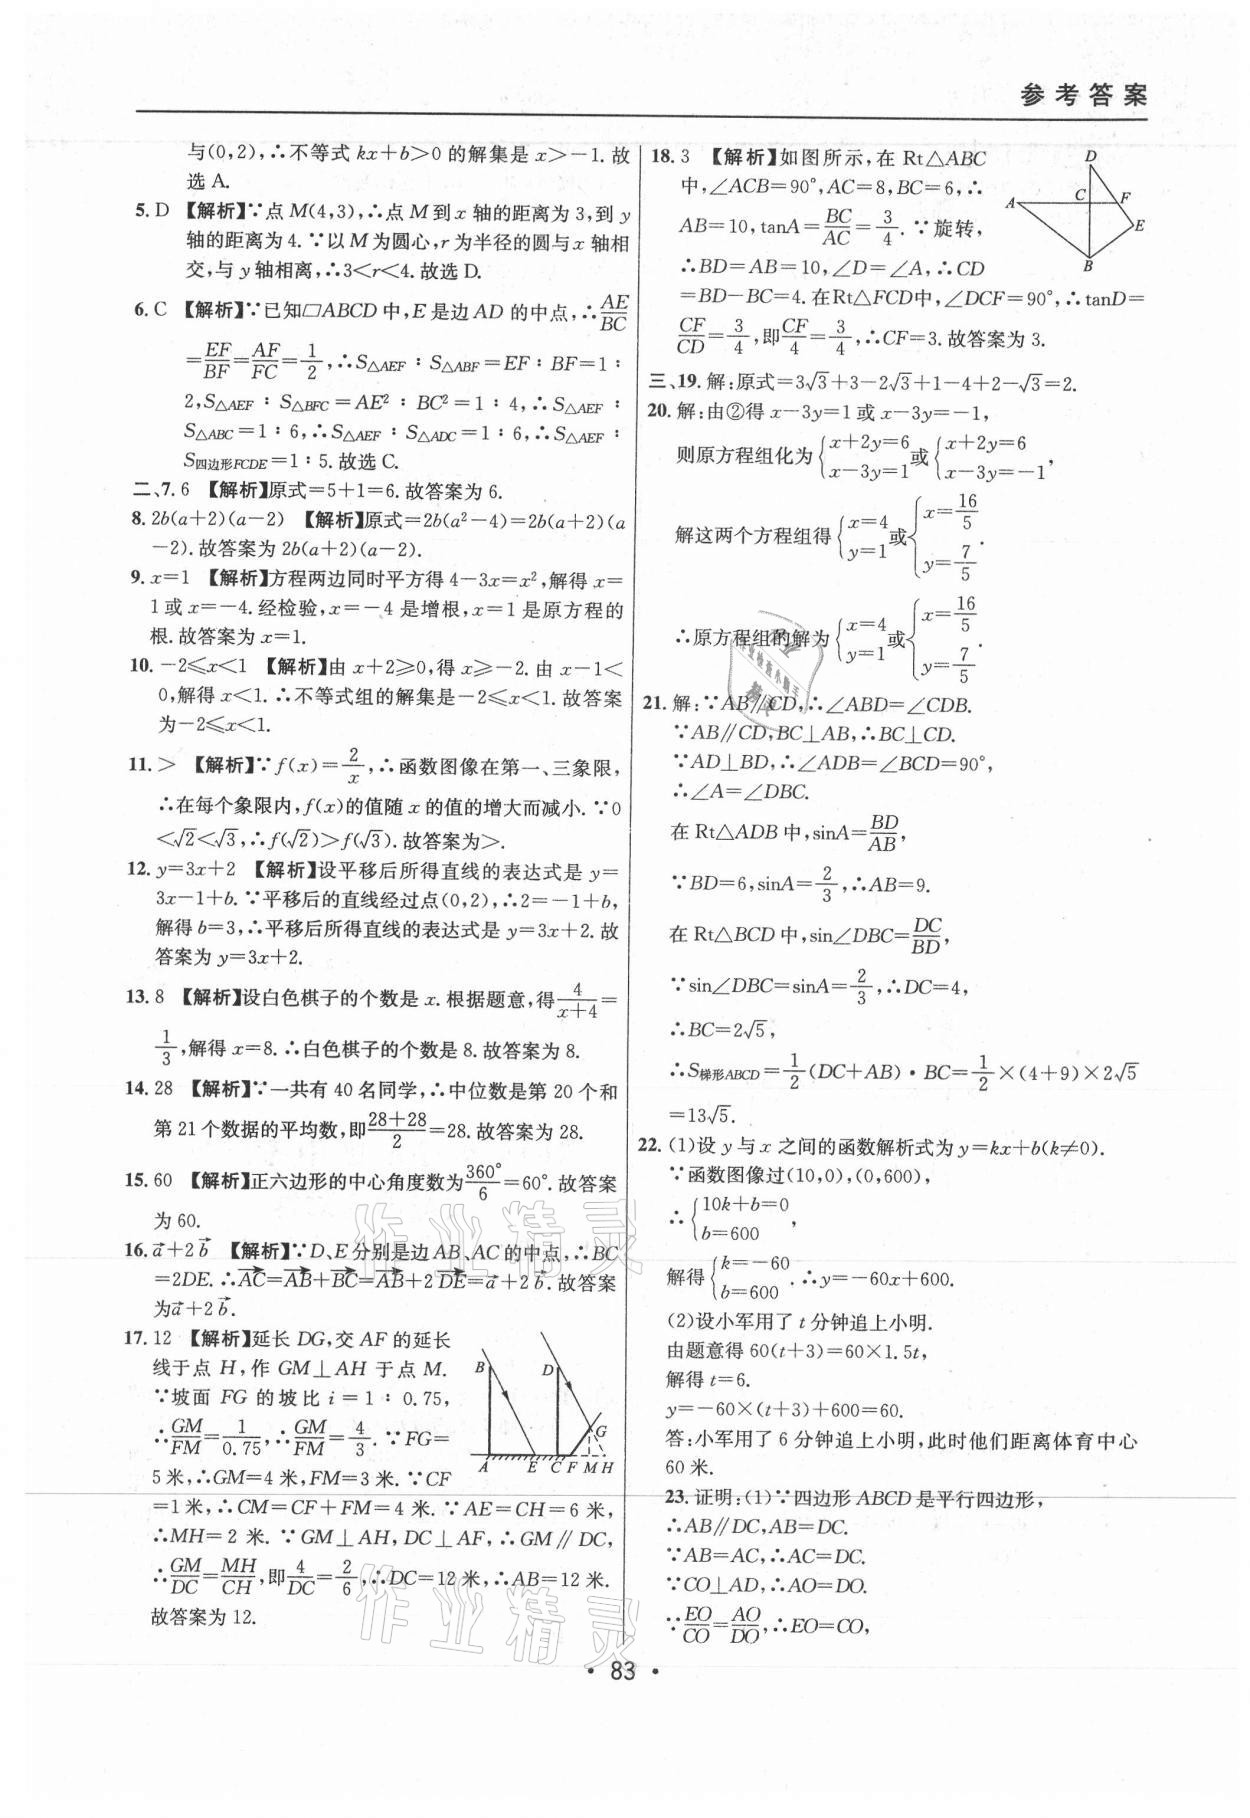 参考答案
与(0,2),∴不等式 kx+b>0 的解集是 x>-1. 故
选 A.
5. D 【解析】∵点 M(4,3),∴点 M 到 x 轴的距离为 3,到 y
轴的距离为 4. ∵以 M 为圆心,r 为半径的圆与 x 轴相
交,与 y 轴相离,∴3<r<4. 故选 D.
6. C 【解析】∵已知□ABCD 中,E 是边 AD 的中点,∴AE/BC
=EF/BF=AF/FC=1/2,∴S△AEF∶S△ABF=EF∶BF=1∶
2,S△AEF∶S△BFC=AE²∶BC²=1∶4,∴S△AEF∶
S△ABC=1∶6,∴S△AEF∶S△ADC=1∶6,∴S△AEF∶
S四边形FCDE=1∶5. 故选 C.
二、7. 6 【解析】原式=5+1=6. 故答案为 6.
8. 2b(a+2)(a-2) 【解析】原式=2b(a²-4)=2b(a+2)(a
-2). 故答案为 2b(a+2)(a-2).
9. x=1 【解析】方程两边同时平方得 4-3x=x²,解得 x=
1 或 x=-4. 经检验,x=-4 是增根,x=1 是原方程的
根. 故答案为 x=1.
10. -2≤x<1 【解析】由 x+2≥0,得 x≥-2. 由 x-1<
0,解得 x<1. ∴不等式组的解集是-2≤x<1. 故答案
为-2≤x<1.
11. > 【解析】∵f(x)=2/x,∴函数图像在第一、三象限,
∴在每个象限内,f(x)的值随 x 的值的增大而减小. ∵0
<√2<√3,∴f(√2)>f(√3). 故答案为>.
12. y=3x+2 【解析】设平移后所得直线的表达式是 y=
3x-1+b. ∵平移后的直线经过点(0,2),∴2=-1+b,
解得 b=3,∴平移后所得直线的表达式是 y=3x+2. 故
答案为 y=3x+2.
13. 8 【解析】设白色棋子的个数是 x. 根据题意,得4/(x+4)=
1/3,解得 x=8. ∴白色棋子的个数是 8. 故答案为 8.
14. 28 【解析】∵一共有 40 名同学,∴中位数是第 20 个和
第 21 个数据的平均数,即(28+28)/2=28. 故答案为 28.
15. 60 【解析】正六边形的中心角度数为360°/6=60°. 故答案
为 60.
16. a⃗+2b⃗ 【解析】∵D、E 分别是边 AB、AC 的中点,∴BC
=2DE. ∴AC⃗=AB⃗+BC⃗=AB⃗+2DE⃗=a⃗+2b⃗. 故答案
为a⃗+2b⃗.
17. 12 【解析】延长 DG,交 AF 的延长
线于点 H,作 GM⊥AH 于点 M.
∵坡面 FG 的坡比 i=1∶0.75,
∴GM/FM=1/0.75,∴GM/FM=4/3. ∵FG=
5 米,∴GM=4 米,FM=3 米. ∵CF
=1 米,∴CM=CF+FM=4 米. ∵AE=CH=6 米,
∴MH=2 米. ∵GM⊥AH,DC⊥AF,∴GM∥DC,
∴GM/DC=MH/CH,即4/DC=2/6,∴DC=12 米,∴AB=12 米.
故答案为 12.
B D G A E C F M H
18. 3 【解析】如图所示,在 Rt△ABC
中,∠ACB=90°,AC=8,BC=6,∴
AB=10,tanA=BC/AC=3/4. ∵旋转,
∴BD=AB=10,∠D=∠A,∴CD
=BD-BC=4. 在Rt△FCD中,∠DCF=90°,∴tanD=
CF/CD=3/4,即CF/4=3/4,∴CF=3. 故答案为 3.
D A C F E B
三、19. 解:原式=3√3+3-2√3+1-4+2-√3=2.
20. 解:由②得 x-3y=1 或 x-3y=-1,
则原方程组化为{x+2y=6 x-3y=1 或{x+2y=6 x-3y=-1,
解这两个方程组得{x=4 y=1 或{x=16/5 y=7/5.
∴原方程组的解为{x=4 y=1 或{x=16/5 y=7/5.
21. 解:∵AB∥CD,∴∠ABD=∠CDB.
∵AB∥CD,BC⊥AB,∴BC⊥CD.
∵AD⊥BD,∴∠ADB=∠BCD=90°,
∴∠A=∠DBC.
在 Rt△ADB 中,sinA=BD/AB,
∵BD=6,sinA=2/3,∴AB=9.
在 Rt△BCD 中,sin∠DBC=DC/BD,
∵sin∠DBC=sinA=2/3,∴DC=4,
∴BC=2√5,
∴S梯形ABCD=1/2(DC+AB)·BC=1/2×(4+9)×2√5
=13√5.
22. (1)设 y 与 x 之间的函数解析式为 y=kx+b(k≠0).
∵函数图像过(10,0),(0,600),
∴{10k+b=0 b=600,
解得{k=-60 b=600. ∴y=-60x+600.
(2)设小军用了 t 分钟追上小明.
由题意得 60(t+3)=60×1.5t,
解得 t=6.
y=-60×(t+3)+600=60.
答:小军用了 6 分钟追上小明,此时他们距离体育中心
60 米.
23. 证明:(1)∵四边形 ABCD 是平行四边形,
∴AB∥DC,AB=DC.
∵AB=AC,∴AC=DC.
∵CO⊥AD,∴AO=DO.
∵EO/CO=AO/DO,∴EO=CO,
作业精灵
作业精灵
· 83 ·